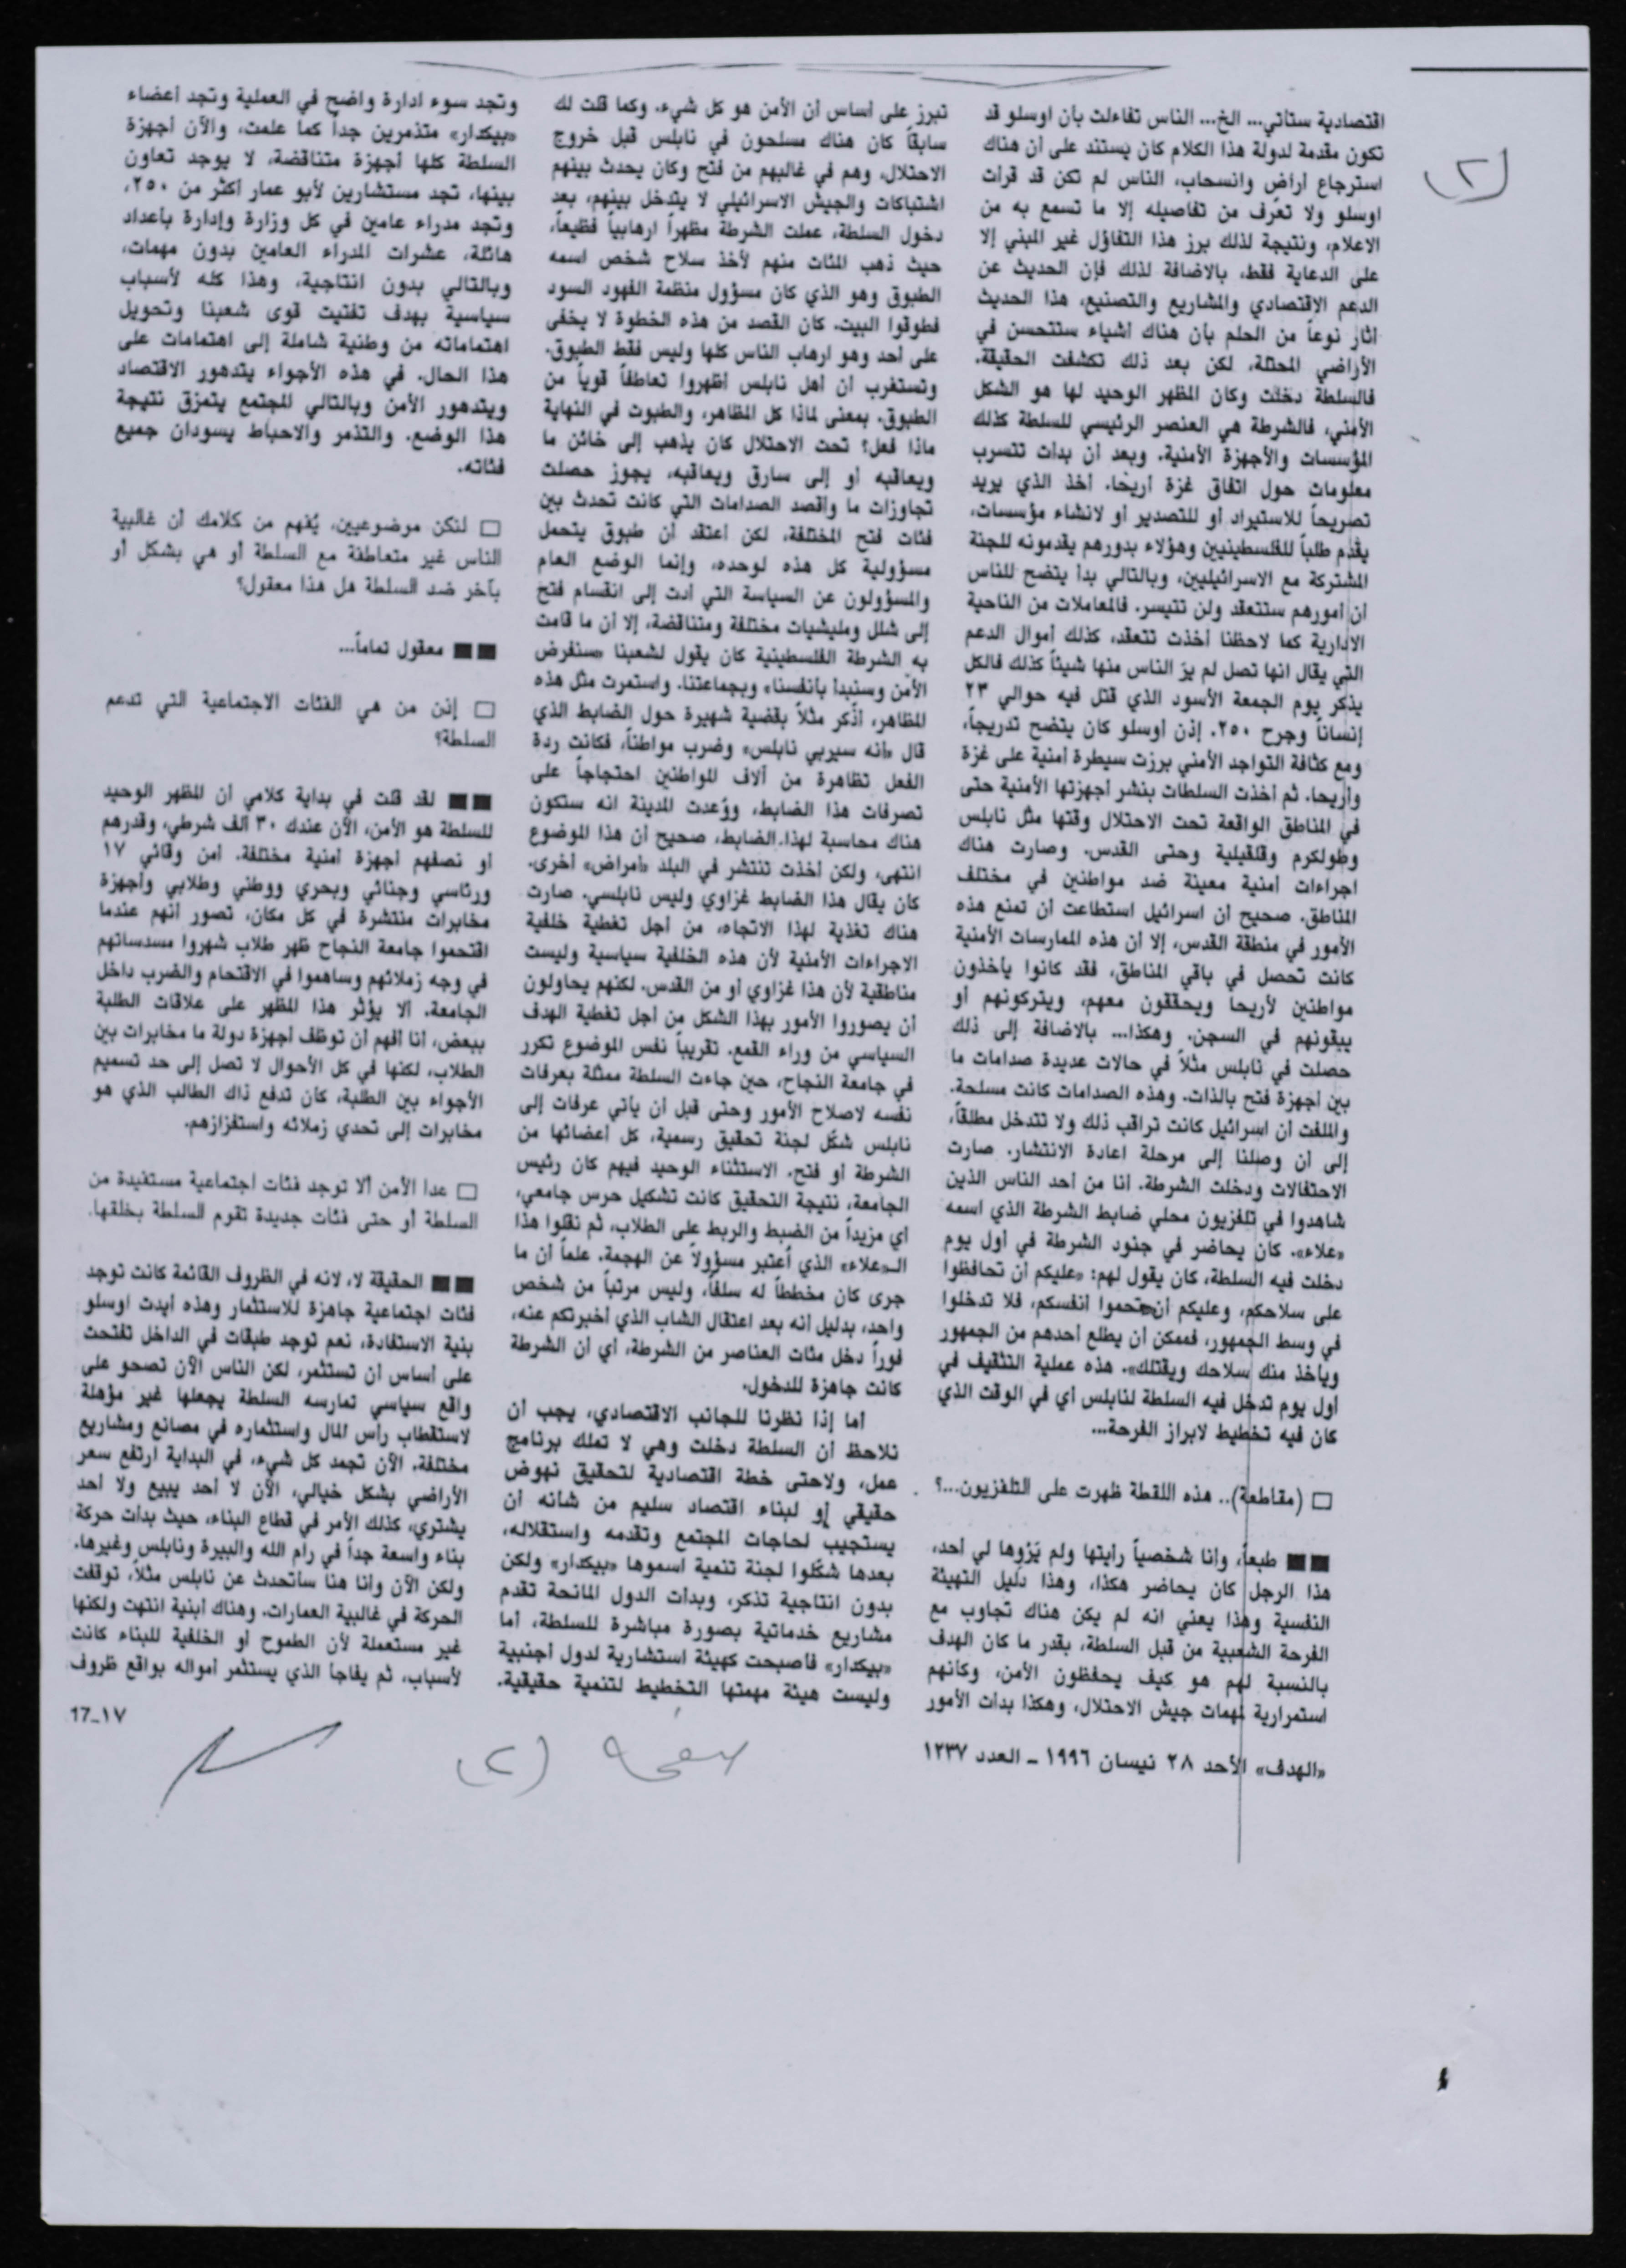 (٢)
اقتصادية ستأتي... الخ... الناس تفاءلت بأن اوسلو قد
تكون مقدمة لدولة هذا الكلام كان يستند على أن هناك
استرجاع أراضٍ وانسحاب، الناس لم تكن قد قرأت
اوسلو ولا تعرف من تفاصيله إلا ما تسمع به من
الاعلام، ونتيجة لذلك برز هذا التفاؤل غير المبني إلا
على الدعاية فقط، بالاضافة لذلك فإن الحديث عن
الدعم الاقتصادي والمشاريع والتصنيع، هذا الحديث
أثار نوعاً من الحلم بأن هناك أشياء ستتحسن في
الأراضي المحتلة، لكن بعد ذلك تكشفت الحقيقة.
فالسلطة دخلت وكان المظهر الوحيد لها هو الشكل
الأمني، فالشرطة هي العنصر الرئيسي للسلطة كذلك
المؤسسات والأجهزة الأمنية. وبعد أن بدأت تتسرب
معلومات حول اتفاق غزة أريحا. أخذ الذي يريد
تصريحاً للاستيراد أو للتصدير أو لانشاء مؤسسات،
يقدم طلباً للفلسطينيين وهؤلاء بدورهم يقدمونه للجنة
المشتركة مع الاسرائيليين، وبالتالي بدأ يتضح للناس
أن أمورهم ستتعقد ولن تتيسر. فالمعاملات من الناحية
الادارية كما لاحظنا أخذت تتعقد، كذلك أموال الدعم
التي يقال انها تصل لم يرَ الناس منها شيئاً كذلك فالكل
يذكر يوم الجمعة الأسود الذي قتل فيه حوالي ٢٣
إنساناً وجرح ٢٥٠. إذن أوسلو كان يتضح تدريجاً،
ومع كثافة التواجد الأمني برزت سيطرة أمنية على غزة
وأريحا. ثم أخذت السلطات بنشر أجهزتها الأمنية حتى
في المناطق الواقعة تحت الاحتلال وقتها مثل نابلس
وطولكرم وقلقيلية وحتى القدس. وصارت هناك
اجراءات أمنية معينة ضد مواطنين في مختلف
المناطق. صحيح أن اسرائيل استطاعت أن تمنع هذه
الأمور في منطقة القدس، إلا أن هذه الممارسات الأمنية
كانت تحصل في باقي المناطق، فقد كانوا يأخذون
مواطنين لأريحا ويحققون معهم، ويتركونهم أو
يبقونهم في السجن. وهكذا... بالاضافة إلى ذلك
حصلت في نابلس مثلاً في حالات عديدة صدامات ما
بين أجهزة فتح بالذات. وهذه الصدامات كانت مسلحة.
والملفت أن اسرائيل كانت تراقب ذلك ولا تتدخل مطلقاً،
إلى أن وصلنا إلى مرحلة اعادة الانتشار. صارت
الاحتفالات ودخلت الشرطة. أنا من أحد الناس الذين
شاهدوا في تلفزيون محلي ضابط الشرطة الذي اسمه
«علاء». كان يحاضر في جنود الشرطة في أول يوم
دخلت فيه السلطة، كان يقول لهم: «عليكم أن تحافظوا
على سلاحكم، وعليكم أن تحموا أنفسكم، فلا تدخلوا
في وسط الجمهور، فممكن أن يطلع أحدهم من الجمهور
ويأخذ منك سلاحك ويقتلك». هذه عملية التثقيف في
أول يوم تدخل فيه السلطة لنابلس أي في الوقت الذي
كان فيه تخطيط لابراز الفرحة...
□ (مقاطعة).. هذه اللقطة ظهرت على التلفزيون...؟
■■ طبعاً، وأنا شخصياً رأيتها ولم يَرْوها لي أحد،
هذا الرجل كان يحاضر هكذا، وهذا دليل التهيئة
النفسية وهذا يعني انه لم يكن هناك تجاوب مع
الفرحة الشعبية من قبل السلطة، بقدر ما كان الهدف
بالنسبة لهم هو كيف يحفظون الأمن، وكأنهم
استمرارية لمهمات جيش الاحتلال، وهكذا بدأت الأمور
تبرز على أساس أن الأمن هو كل شيء. وكما قلت لك
سابقاً كان هناك مسلحون في نابلس قبل خروج
الاحتلال، وهم في غالبهم من فتح وكان يحدث بينهم
اشتباكات والجيش الاسرائيلي لا يتدخل بينهم، بعد
دخول السلطة، عملت الشرطة مظهراً ارهابياً فظيعاً،
حيث ذهب المئات منهم لأخذ سلاح شخص اسمه
الطبوق وهو الذي كان مسؤول منظمة الفهود السود
فطوقوا البيت. كان القصد من هذه الخطوة لا يخفى
على أحد وهو ارهاب الناس كلها وليس فقط الطبوق.
وتستغرب أن أهل نابلس أظهروا تعاطفاً قوياً من
الطبوق. بمعنى لماذا كل المظاهر، والطبوت في النهاية
ماذا فعل؟ تحت الاحتلال كان يذهب إلى خائن ما
ويعاقبه أو إلى سارق ويعاقبه، يجوز حصلت
تجاوزات ما وأقصد الصدامات التي كانت تحدث بين
فئات فتح المختلفة، لكن أعتقد أن طبوق يتحمل
مسؤولية كل هذه لوحده، وإنما الوضع العام
والمسؤولون عن السياسة التي أدت إلى انقسام فتح
إلى شلل ومليشيات مختلفة ومتناقضة، إلا أن ما قامت
به الشرطة الفلسطينية كان يقول لشعبنا «سنفرض
الأمن وسنبدأ بأنفسنا» وبجماعتنا. واستمرت مثل هذه
المظاهر، أذكر مثلاً بقضية شهيرة حول الضابط الذي
قال «أنه سيربي نابلس» وضرب مواطناً، فكانت ردة
الفعل تظاهرة من آلاف المواطنين احتجاجاً على
تصرفات هذا الضابط، ووُعدت المدينة انه ستكون
هناك محاسبة لهذا.الضابط، صحيح أن هذا الموضوع
انتهى، ولكن أخذت تنتشر في البلد «أمراض» أخرى.
كان يقال هذا الضابط غزاوي وليس نابلسي. صارت
هناك تغذية لهذا الاتجاه، من أجل تغطية خلفية
الاجراءات الأمنية لأن هذه الخلفية سياسية وليست
مناطقية لأن هذا غزاوي أو من القدس. لكنهم يحاولون
أن يصوروا الأمور بهذا الشكل من أجل تغطية الهدف
السياسي من وراء القمع. تقريباً نفس الموضوع تكرر
في جامعة النجاح، حين جاءت السلطة ممثلة بعرفات
نفسه لاصلاح الأمور وحتى قبل أن يأتي عرفات إلى
نابلس شكّل لجنة تحقيق رسمية، كل أعضائها من
الشرطة أو فتح. الاستثناء الوحيد فيهم كان رئيس
الجامعة، نتيجة التحقيق كانت تشكيل حرس جامعي،
أي مزيداً من الضبط والربط على الطلاب، ثم نقلوا هذا
الـ«علاء» الذي أُعتبر مسؤولاً عن الهجمة. علماً أن ما
جرى كان مخططاً له سلفاً، وليس مرتباً من شخص
واحد، بدليل أنه بعد اعتقال الشاب الذي أخبرتكم عنه،
فوراً دخل مئات العناصر من الشرطة، أي أن الشرطة
كانت جاهزة للدخول.
أما إذا نظرنا للجانب الاقتصادي، يجب أن
نلاحظ أن السلطة دخلت وهي لا تملك برنامج
عمل، ولاحتى خطة اقتصادية لتحقيق نهوض
حقيقي أو لبناء اقتصاد سليم من شأنه أن
يستجيب لحاجات المجتمع وتقدمه واستقلاله،
بعدها شكّلوا لجنة تنمية اسموها «بيكدار» ولكن
بدون انتاجية تذكر، وبدأت الدول المانحة تقدم
مشاريع خدماتية بصورة مباشرة للسلطة، أما
«بيكدار» فأصبحت كهيئة استشارية لدول أجنبية
وليست هيئة مهمتها التخطيط لتنمية حقيقية.
وتجد سوء ادارة واضح في العملية وتجد أعضاء
«بيكدار» متذمرين جداً كما علمت، والآن أجهزة
السلطة كلها أجهزة متناقضة، لا يوجد تعاون
بينها، تجد مستشارين لأبو عمار أكثر من ٢٥٠،
وتجد مدراء عامين في كل وزارة وإدارة بأعداد
هائلة، عشرات المدراء العامين بدون مهمات،
وبالتالي بدون انتاجية، وهذا كله لأسباب
سياسية بهدف تفتيت قوى شعبنا وتحويل
اهتماماته من وطنية شاملة إلى اهتمامات على
هذا الحال. في هذه الأجواء يتدهور الاقتصاد
ويتدهور الأمن وبالتالي المجتمع يتمزق نتيجة
هذا الوضع. والتذمر والاحباط يسودان جميع
فئاته.
□ لنكن موضوعيين، يُفهم من كلامك أن غالبية
الناس غير متعاطفة مع السلطة أو هي بشكل أو
بآخر ضد السلطة هل هذا معقول؟
■■ معقول تماماً...
□ إذن من هي الفئات الاجتماعية التي تدعم
السلطة؟
■■ لقد قلت في بداية كلامي أن المظهر الوحيد
للسلطة هو الأمن، الآن عندك ٣٠ ألف شرطي، وقدرهم
أو نصفهم أجهزة أمنية مختلفة. أمن وقائي ١٧
ورئاسي وجنائي وبحري ووطني وطلابي وأجهزة
مخابرات منتشرة في كل مكان، تصور أنهم عندما
اقتحموا جامعة النجاح ظهر طلاب شهروا مسدساتهم
في وجه زملائهم وساهموا في الاقتحام والضرب داخل
الجامعة. ألا يؤثر هذا المظهر على علاقات الطلبة
ببعض، أنا أفهم أن توظف أجهزة دولة ما مخابرات بين
الطلاب، لكنها في كل الأحوال لا تصل إلى حد تسميم
الأجواء بين الطلبة، كأن تدفع ذاك الطالب الذي هو
مخابرات إلى تحدي زملائه واستفزازهم.
□ عدا الأمن ألا توجد فئات اجتماعية مستفيدة من
السلطة أو حتى فئات جديدة تقوم السلطة بخلقها.
■■ الحقيقة لا، لانه في الظروف القائمة كانت توجد
فئات اجتماعية جاهزة للاستثمار وهذه أيدت اوسلو
بنية الاستفادة، نعم توجد طبقات في الداخل تفتحت
على أساس أن تستثمر، لكن الناس الآن تصحو على
واقع سياسي تمارسه السلطة يجعلها غير مؤهلة
لاستقطاب رأس المال واستثماره في مصانع ومشاريع
مختلفة. الآن تجمد كل شيء، في البداية ارتفع سعر
الأراضي بشكل خيالي، الآن لا أحد يبيع ولا أحد
يشتري، كذلك الأمر في قطاع البناء، حيث بدأت حركة
بناء واسعة جداً في رام الله والبيرة ونابلس وغيرها.
ولكن الآن وأنا هنا سأتحدث عن نابلس مثلاً، توقفت
الحركة في غالبية العمارات. وهناك أبنية انتهت ولكنها
غير مستعملة لأن الطموح أو الخلفية للبناء كانت
لأسباب، ثم يفاجأ الذي يستثمر أمواله بواقع ظروف
١٧-17
«الهدف» الأحد ٢٨ نيسان ١٩٩٦ - العدد ١٢٣٧
صفحة (٢)